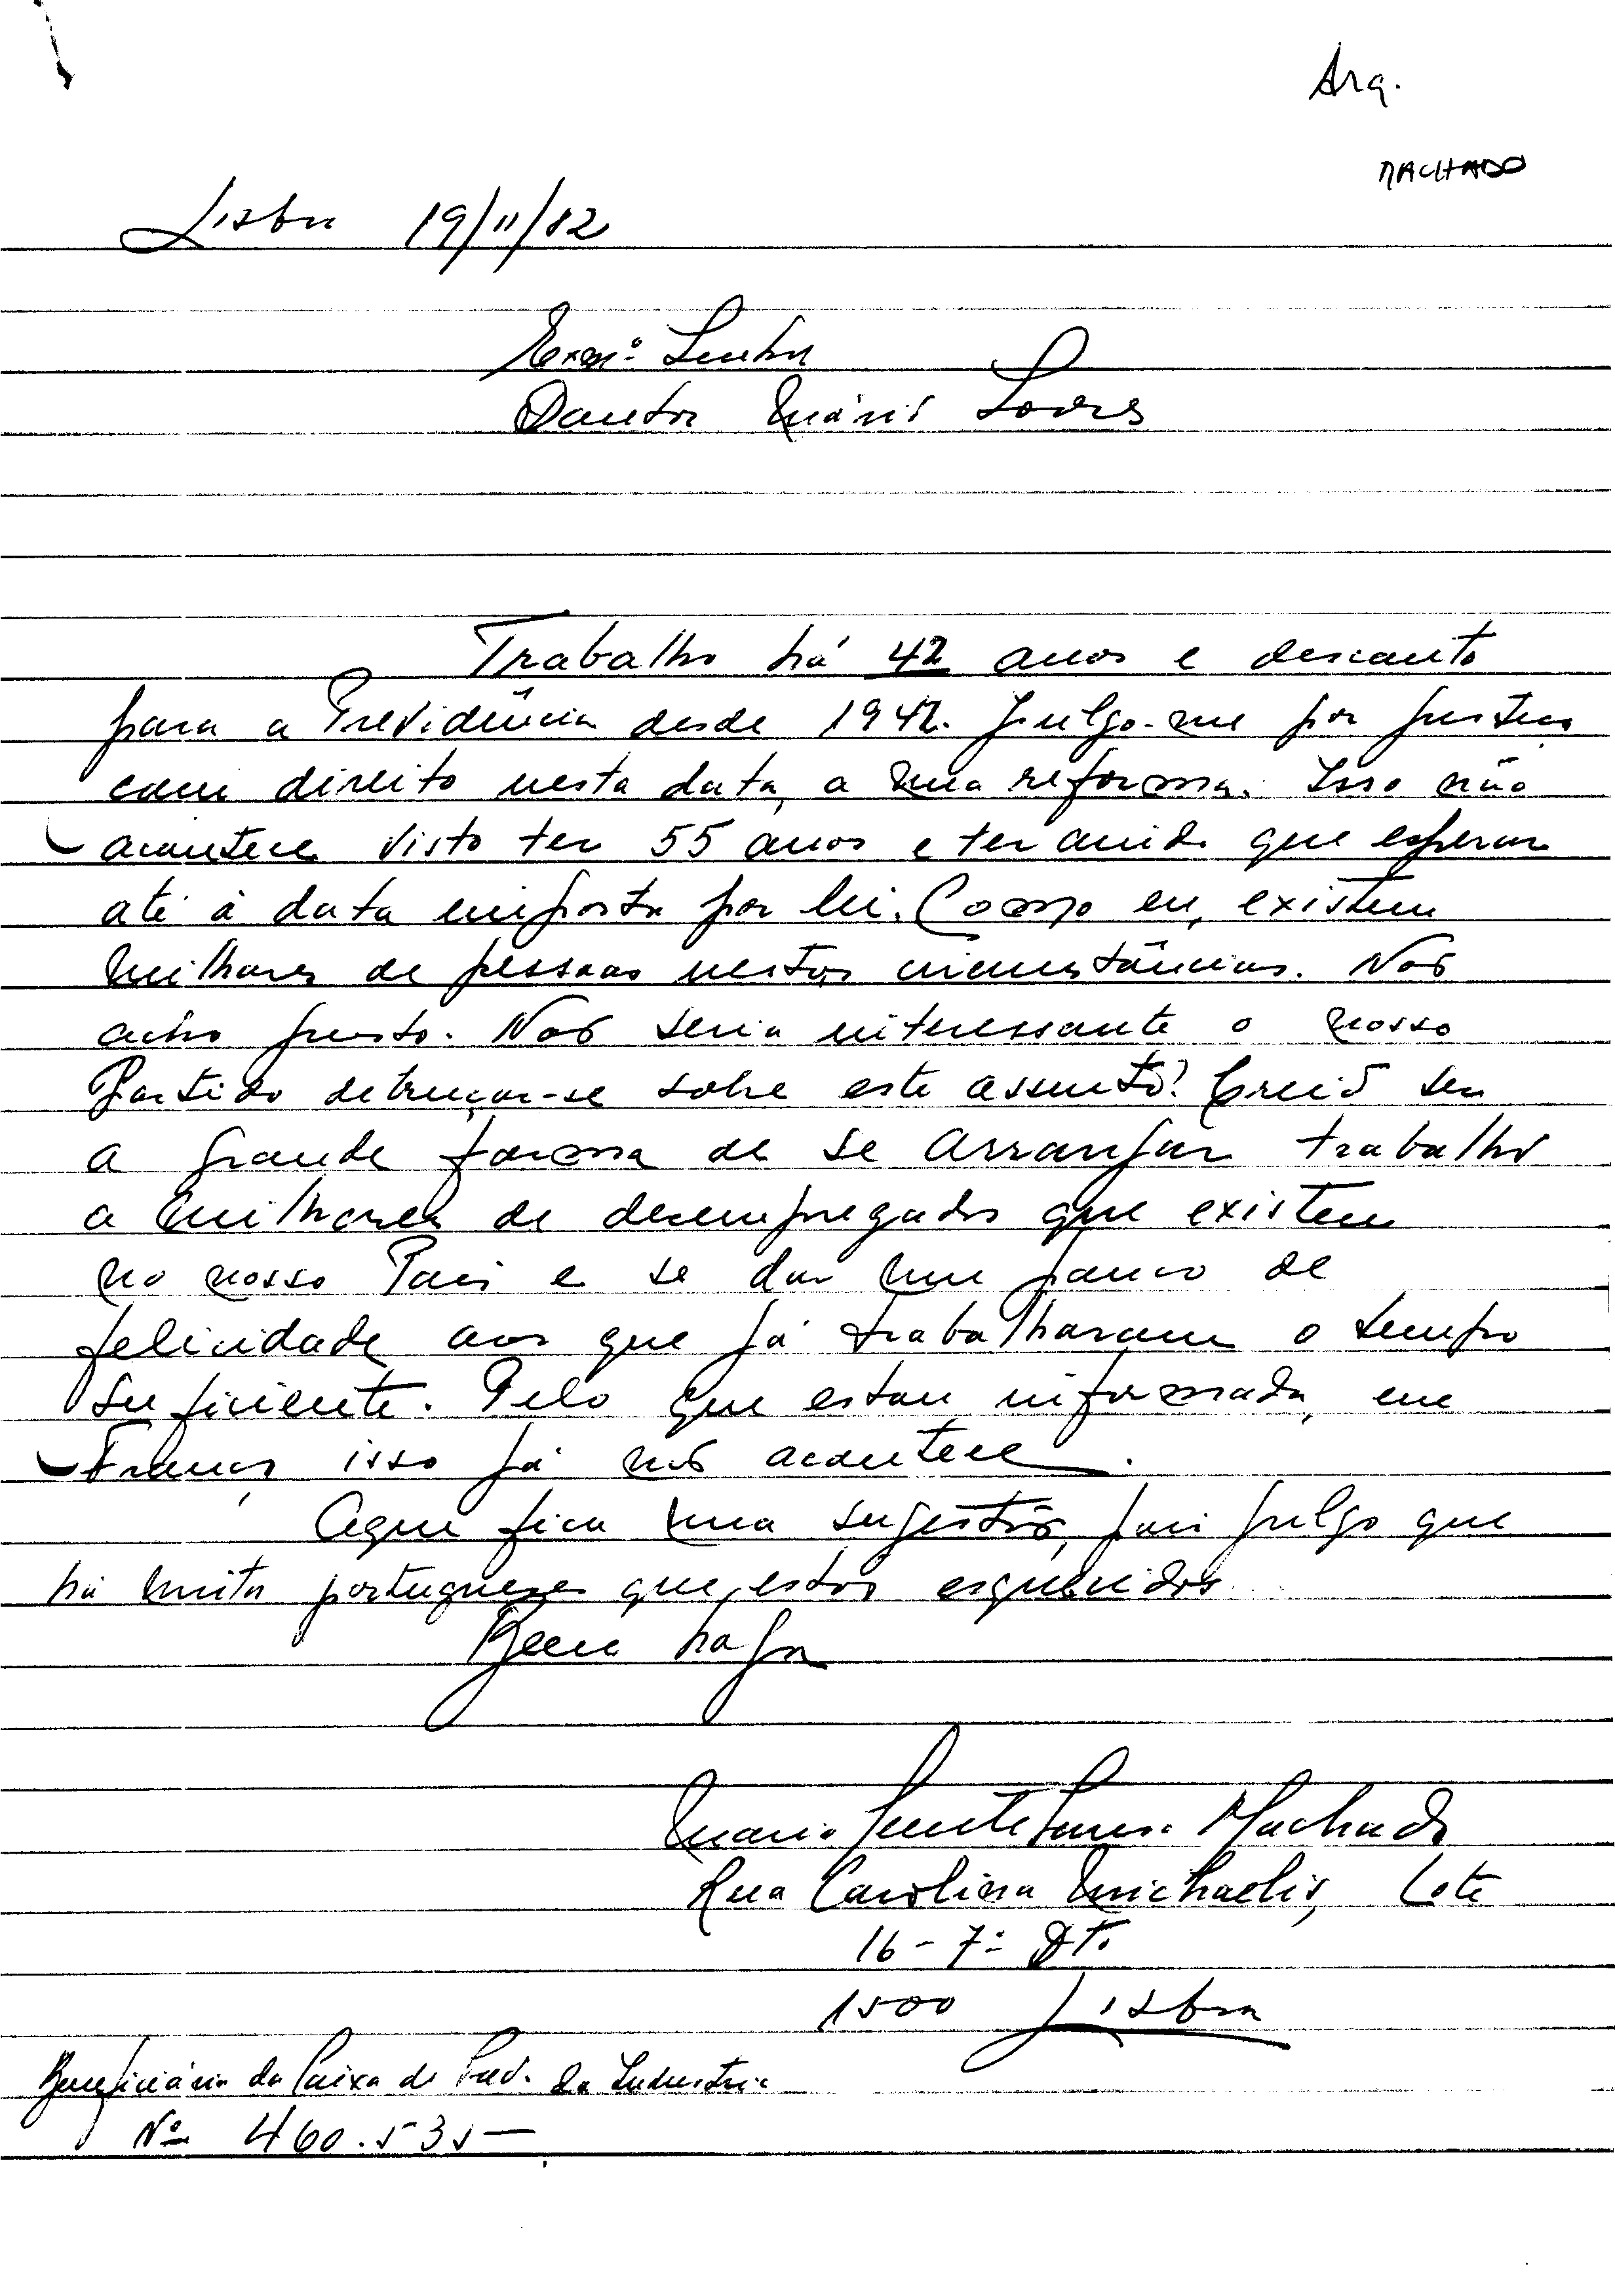 Arq.
MACHADO
Lisboa 19/11/82
Exmº. Senhor
Doutor Mário Soares
Trabalho há 42 anos e desconto
para a Previdência desde 1942. Julgo-me por justiça
com direito nesta data, a uma reforma. Isso não
acontece visto ter 55 anos e ter ainda que esperar
até à data imposta por lei. Como eu, existem
milhares de pessoas nestas circunstâncias. Não
acho justo. Não seria interessante o nosso
Partido debruçar-se sobre este assunto? Creio ser
a grande forma de se arranjar trabalho
a milhares de desempregados que existem
no nosso Pais e se dar um pouco de
felicidade aos que já trabalharam o tempo
suficiente. Pelo que estou informada, em
França isso já não acontece.
Aqui fica uma sugestão, pois julgo que
há muitos portugueses que estão esquecidos.
Bem haja
Maria Machado
Rua Carolina Michaelis, Lote
16 - 7º Dtº.
1500 Lisboa
Beneficiária da Caixa de Prev. da Industria
Nº 460.535